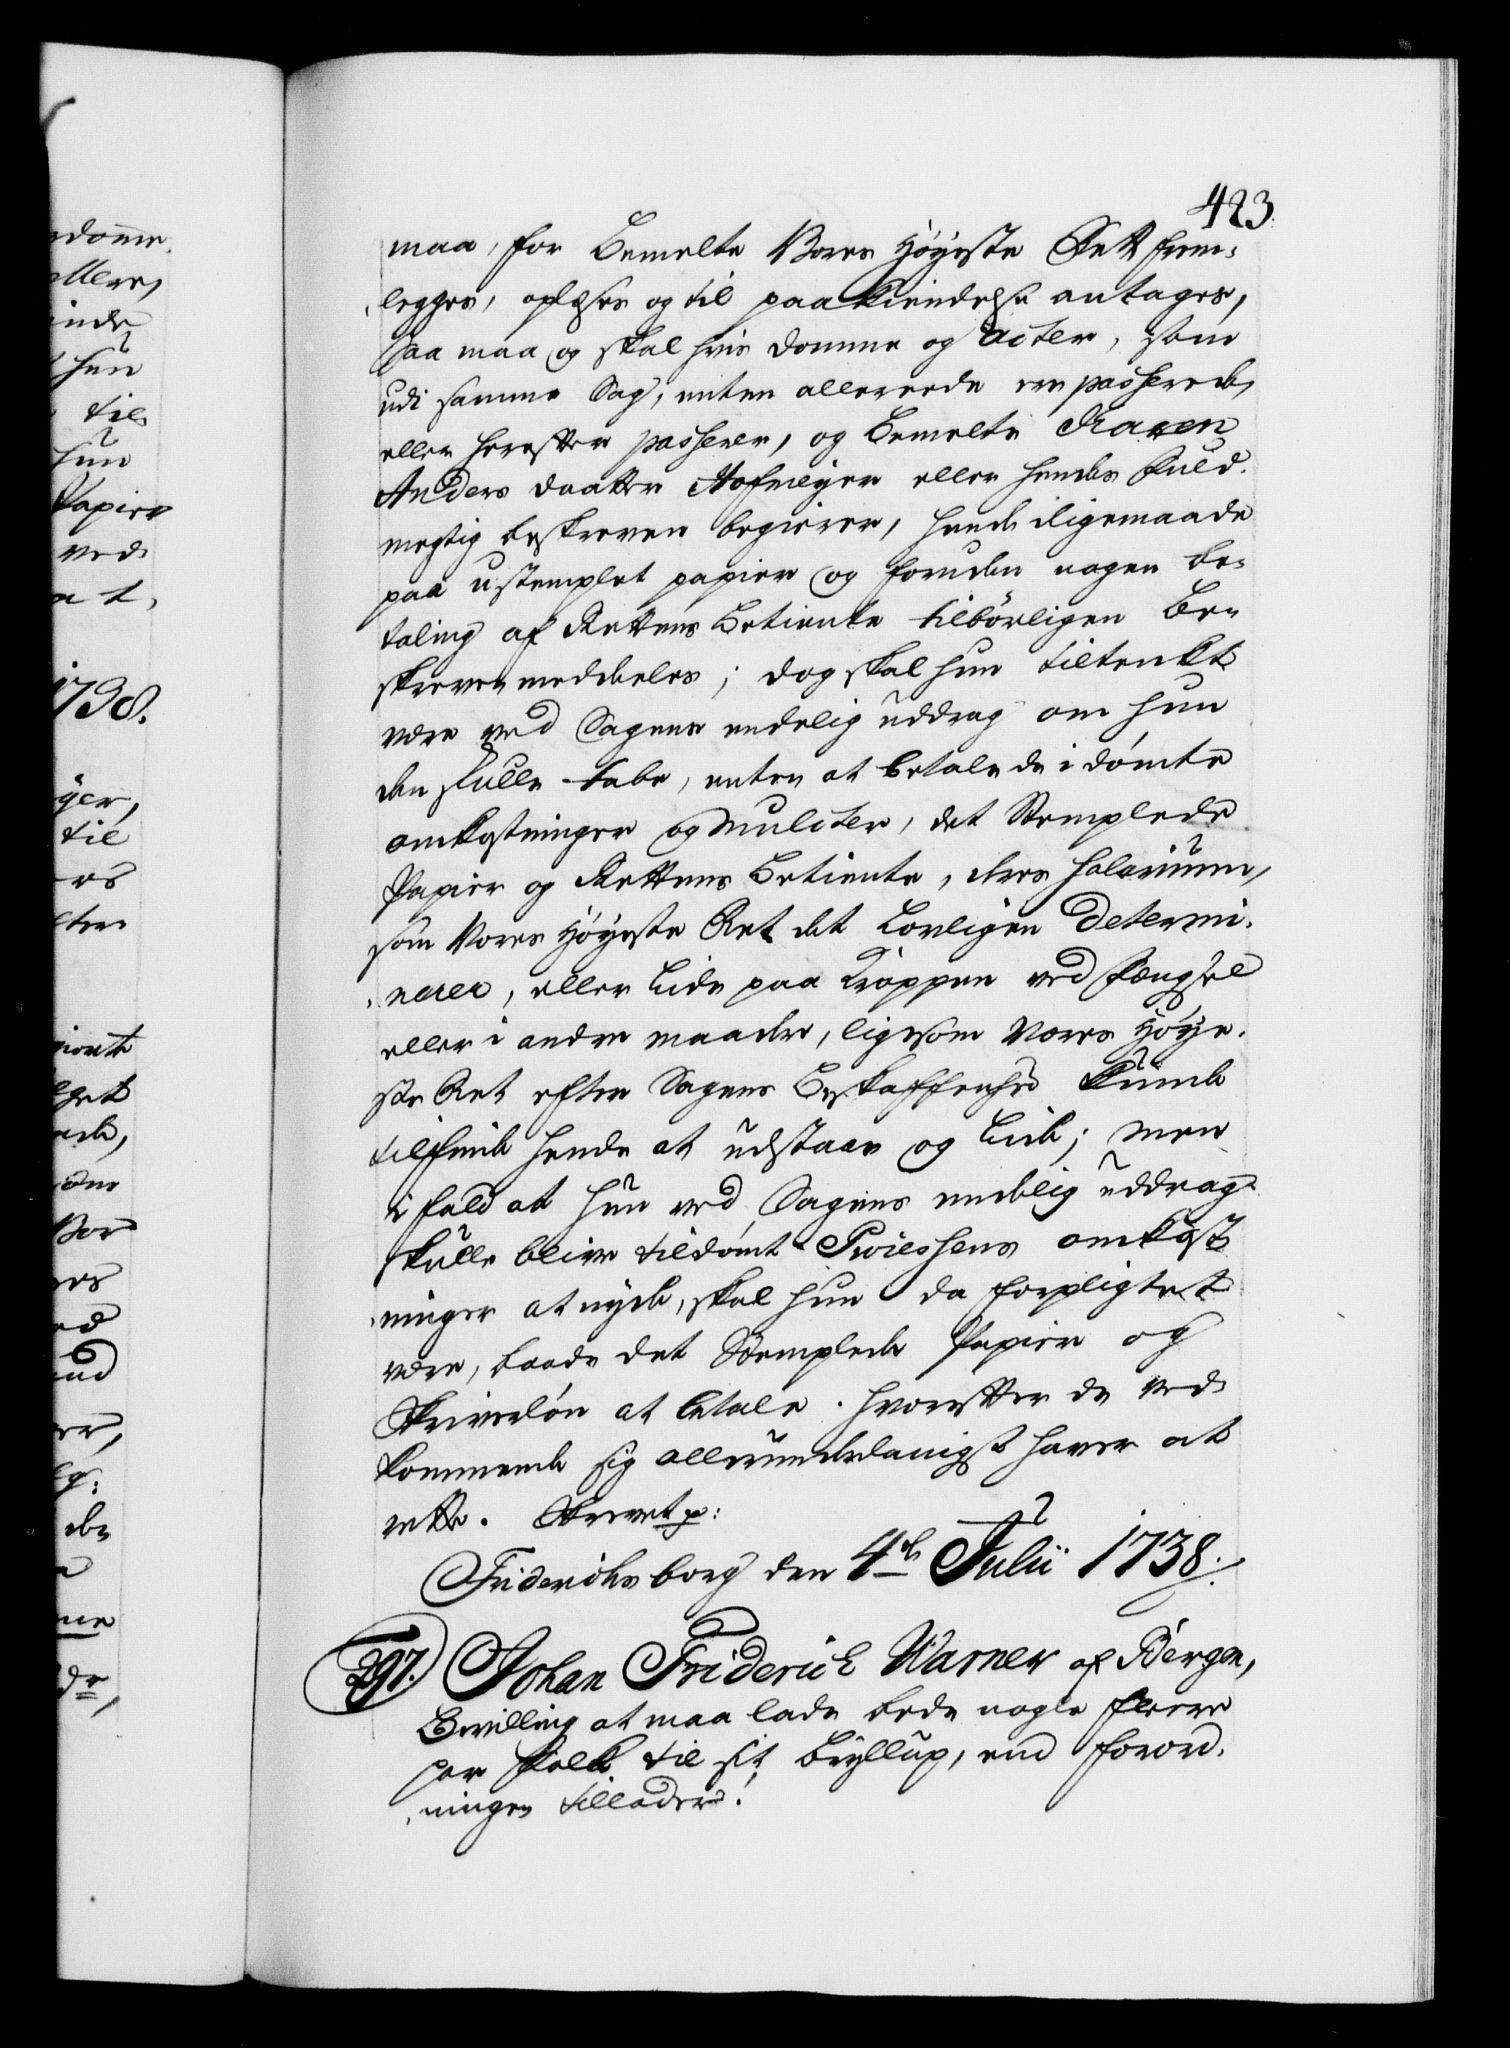 423.
maa, for bemelte Vores Høyeste Rett frem-
legges, oplæses og til paakiendelse antages,
saa maa og skal hvis Domme og Acter, som
udi samme Sag, enten allereede ere passerede,
eller herefter passerer, og bemelte Karen
Anders daatter Hofmeyer eller hendes Fuld-
megtig beskreven begierer, hende iligemaade
paa ustemplet papier og foruden nogen be-
taling af Rettens Betiente tilbörligen be-
skreven meddeeles; dog skal hun tiltenkt
være ved Sagens endelig uddrag om hun
den skulle tabe, enten at betale de idømte
omkostninger og Mulcter, det Stemplede
Papier og Rettens Betiente, deres Salarium,
som Vores Høyeste Ret det lovligen determi-
nerer, eller lide paa Kroppen ved Fængsel
eller i andre maader, ligesom Vores Høye-
ste Ret efter Sagens Beskaffenhed kunde
tilfinde hende at udstaae og lide; men
i fald at hun ved Sagens endelig uddrag
skulle blive tildømt Processens omkost-
ninger at nyde, skal hun da forpligtet
være, baade det Stemplede Papier og
Skriverløn at betale. Hvorefter de ved-
kommende sig allerunderdanigst haver at
rette. Skrevet p:
Friderichsborg den 4de Julii 1738.
297. Johan Friderich Warner af Bergen,
Bevilling at maa lade bede nogle fleere
par Folk til sit bryllup, end Forord-
ningen tillader.